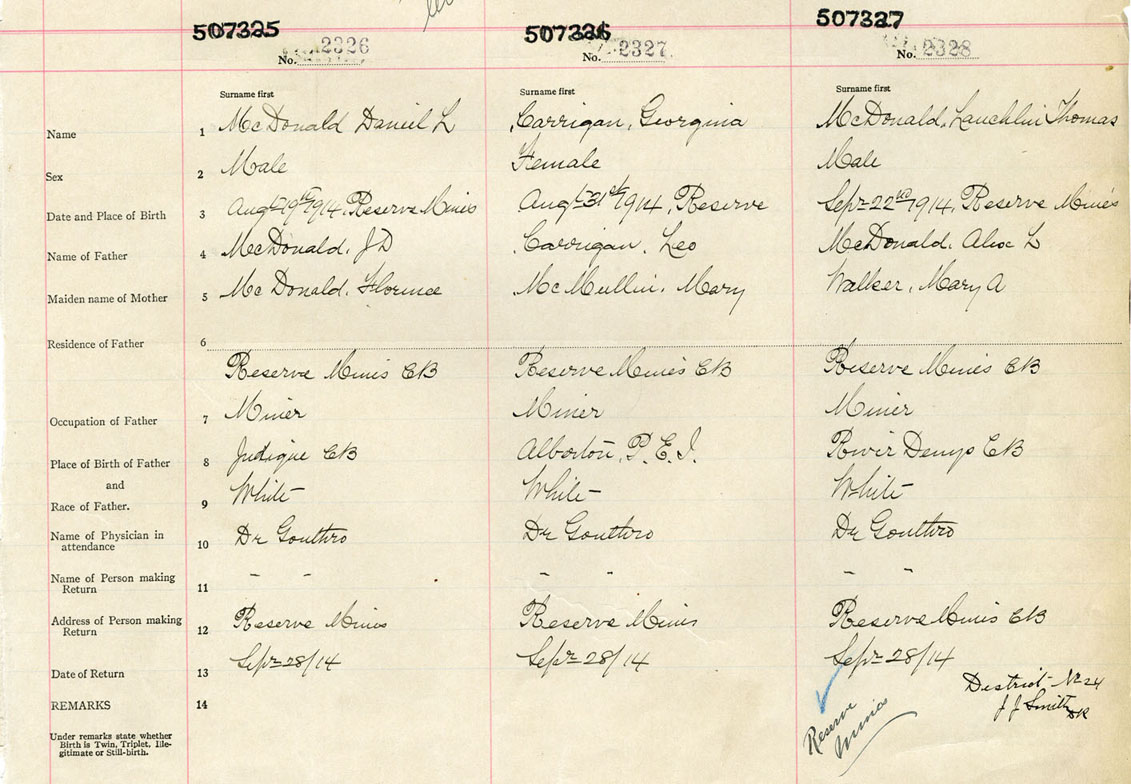 507325 507326 507327
No. 2326 No. 2327 No. 2328
Surname first Surname first Surname first
Name 1 McDonald Daniel L Carrigan, Georgina McDonald, Lauchlin Thomas
Sex 2 Male Female Male
Date and Place of Birth 3 Augt 19th 1914, Reserve Mines Augt 31st 1914, Reserve Sept 22nd 1914, Reserve Mines
Name of Father 4 McDonald, J D Carrigan, Leo McDonald, Alex L
Maiden name of Mother 5 McDonald, Florence McMullin, Mary Walker, Mary A
Residence of Father 6
Reserve Mines CB Reserve Mines CB Reserve Mines CB
Occupation of Father 7 Miner Miner Miner
Place of Birth of Father 8 Judique CB Alberton, P.E.I. River Denys CB
and
Race of Father. 9 White White White
Name of Physician in
attendance 10 Dr Gouthro Dr Gouthro Dr Gouthro
Name of Person making
Return 11 " " " " " "
Address of Person making
Return 12 Reserve Mines Reserve Mines Reserve Mines CB
Date of Return 13 Sept 28/14 Sept 28/14 Sept 28/14
REMARKS 14
District No 24
J J Smith DR
Reserve
Mines
Under remarks state whether
Birth is Twin, Triplet, Ille-
gitimate or Still-birth.